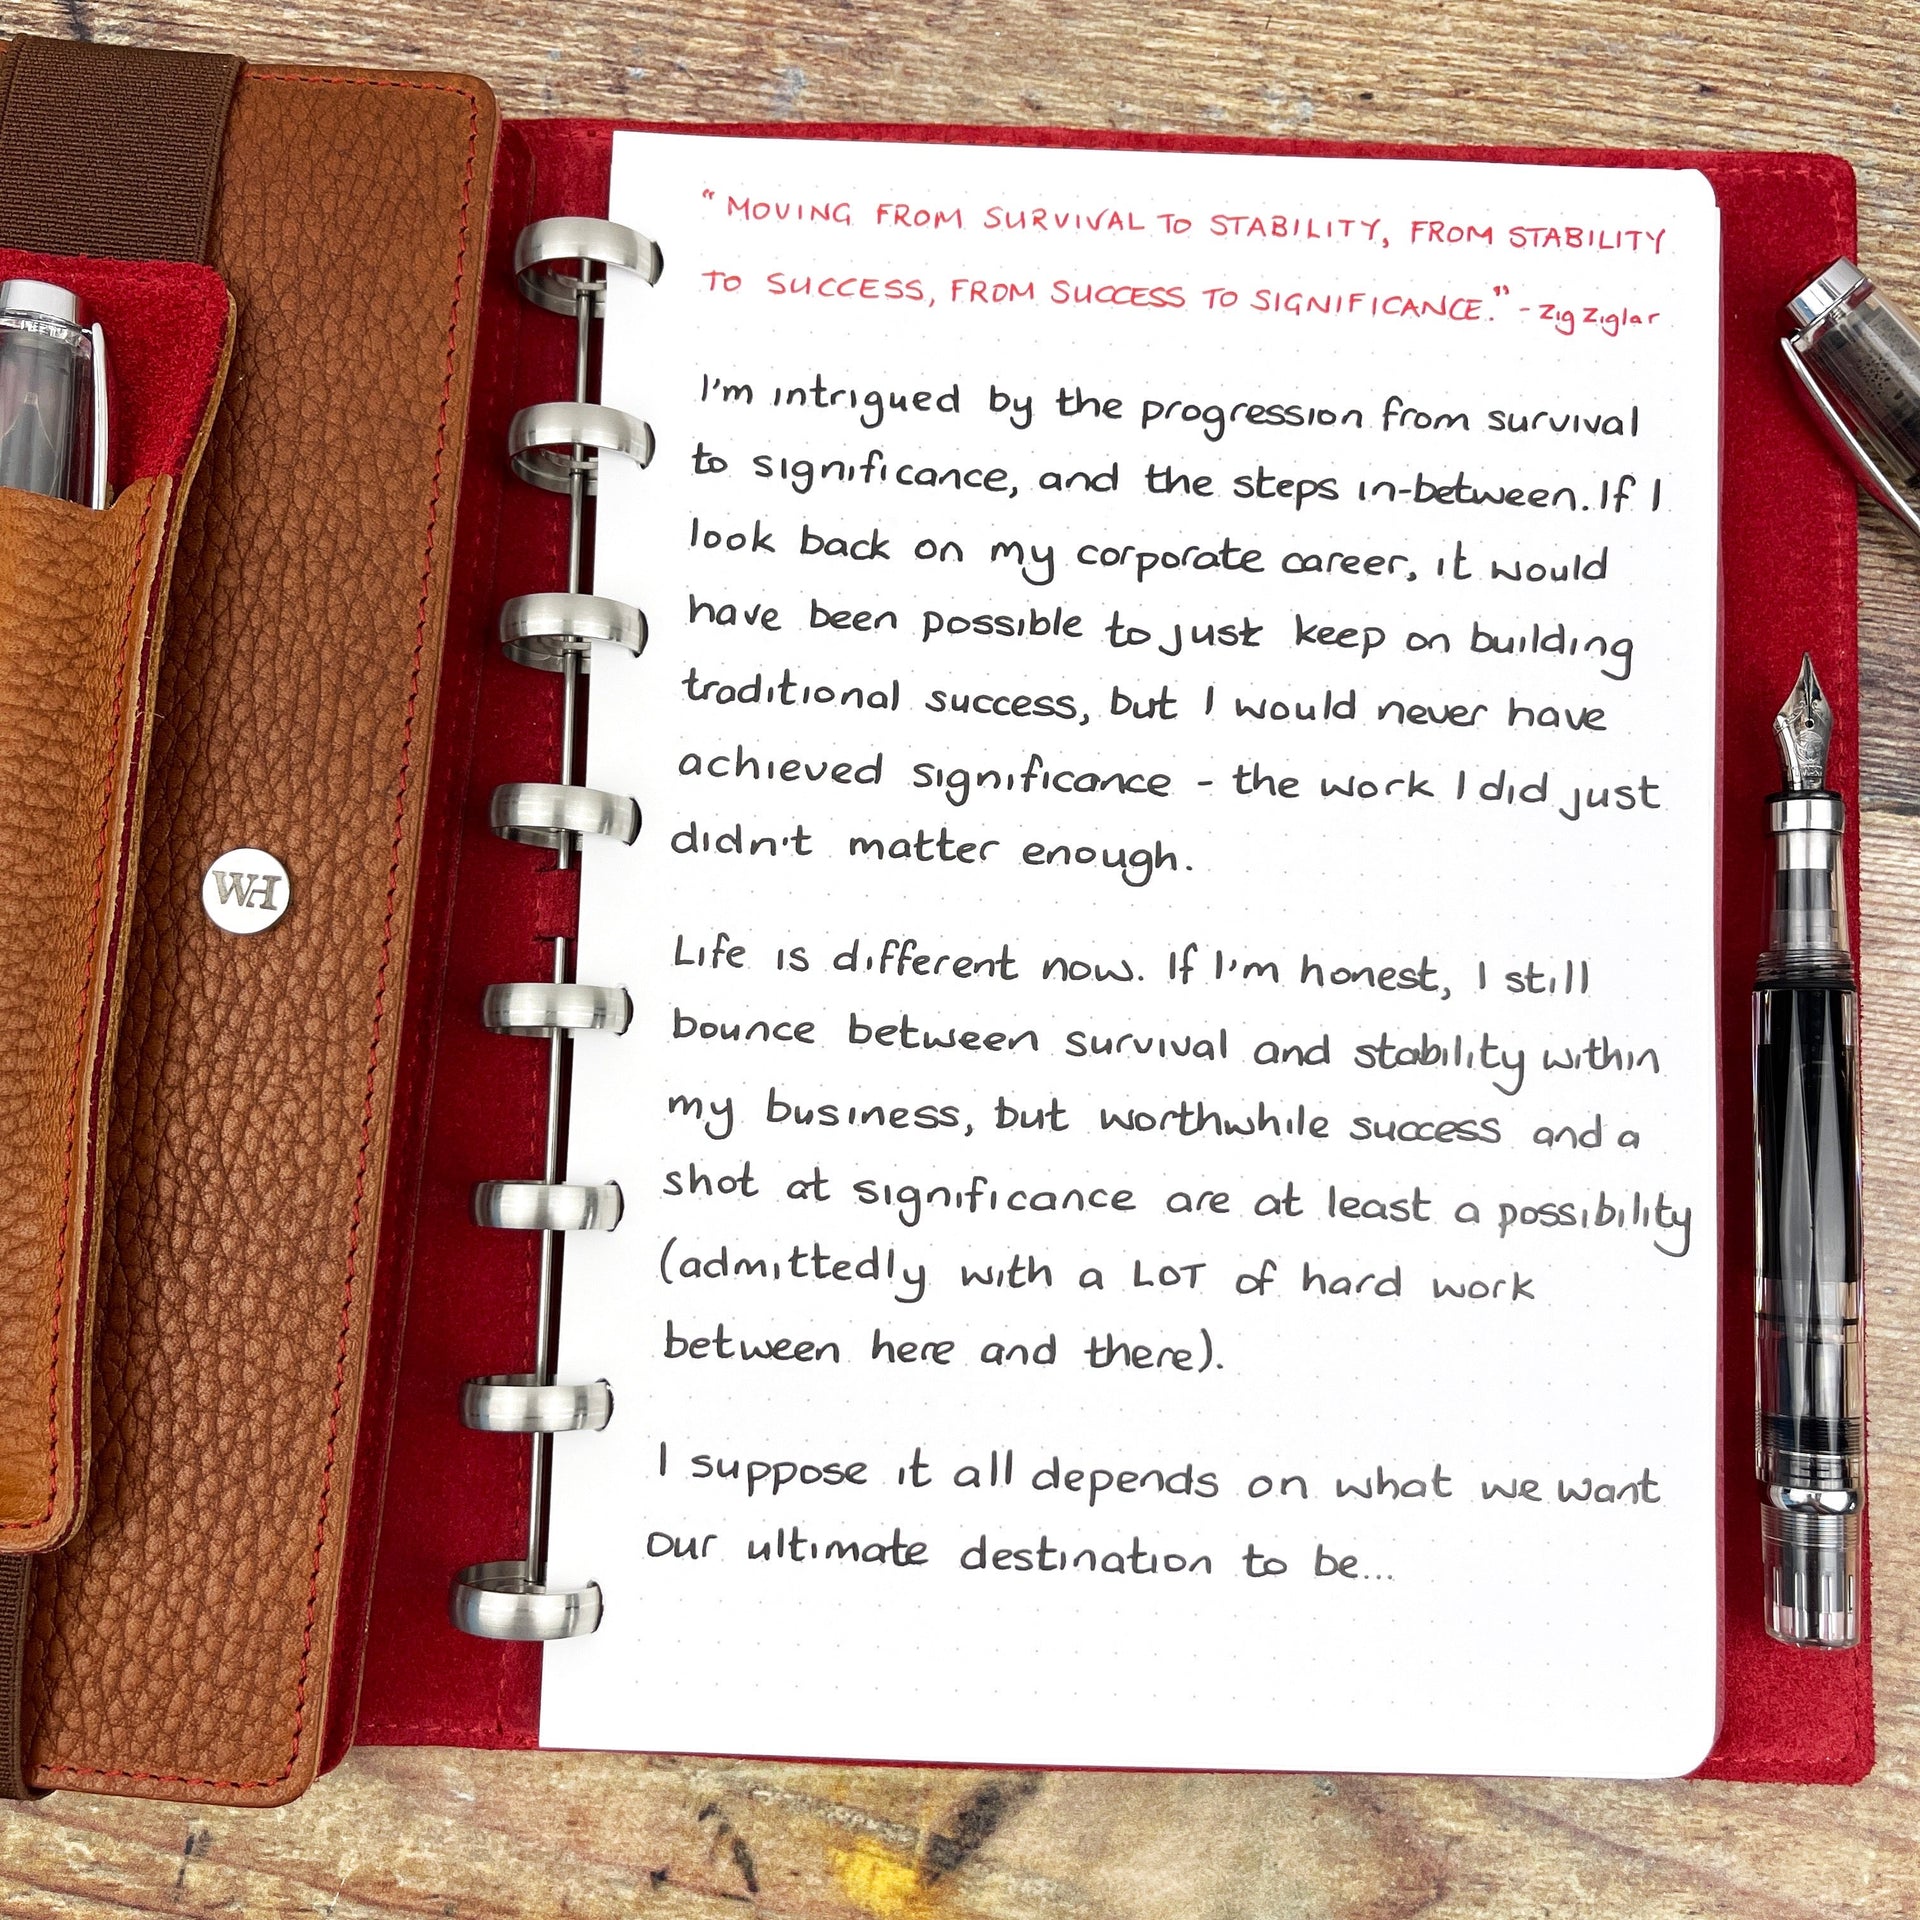 "MOVING FROM SURVIVAL TO STABILITY, FROM STABILITY
TO SUCCESS, FROM SUCCESS TO SIGNIFICANCE." - Zig Ziglar
I'm intrigued by the progression from survival
to significance, and the steps in-between. If I
look back on my corporate career, it would
have been possible to just keep on building
traditional success, but I would never have
achieved significance - the work I did just
didn't matter enough.
Life is different now. If I'm honest, I still
bounce between survival and stability within
my business, but worthwhile success and a
shot at significance are at least a possibility
(admittedly with a LOT of hard work
between here and there).
I suppose it all depends on what we want
our ultimate destination to be...
WH